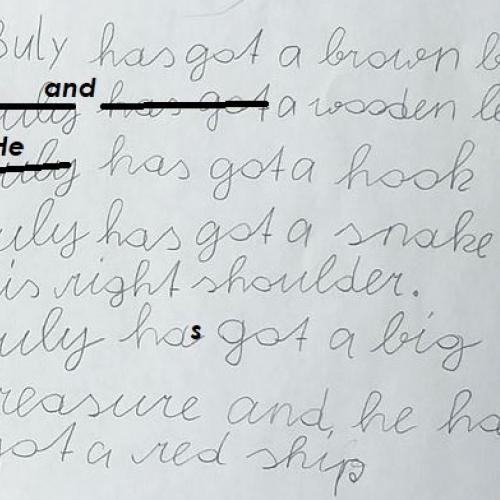 Buly has got a brown b
and
uly has got a wooden le
He
uly has got a hook
uly has got a snake
is right shoulder.
uly has got a big
reasure and, he ha
got a red ship